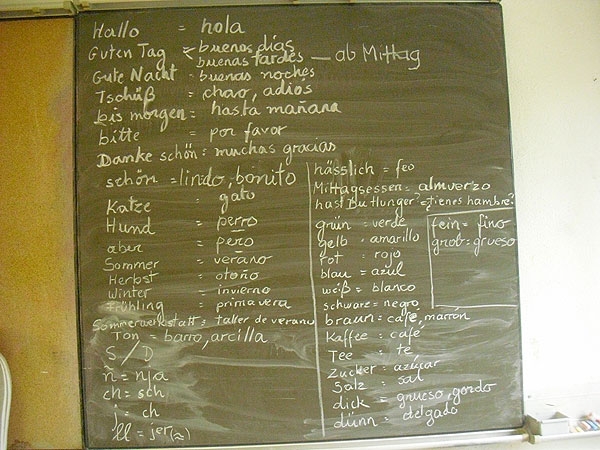 Hallo = hola
Guten Tag < buenos días
buenas tardes — ab Mittag
Gute Nacht = buenas noches
Tschüß = chao, adios
bis morgen = hasta mañana
bitte = por favor
Danke schön = muchas gracias
schön = lindo, bonito
Katze = gato
Hund = perro
aber = pero
Sommer = verano
Herbst = otoño
Winter = invierno
Frühling = primavera
Sommerwerkstatt = taller de verano
Ton = barro, arcilla
S / D
ñ = nja
ch = sch
j = ch
ll = jer(~)
hässlich = feo
Mittagsessen = almuerzo
hast Du Hunger? = ¿tienes hambre?
grün = verde
gelb = amarillo
rot = rojo
blau = azul
weiß = blanco
schwarz = negro
braun = café, marrón
Kaffee = café
Tee = té
Zucker = azúcar
Salz = sal
dick = grueso, gordo
dünn = delgado
fein = fino
grob = grueso